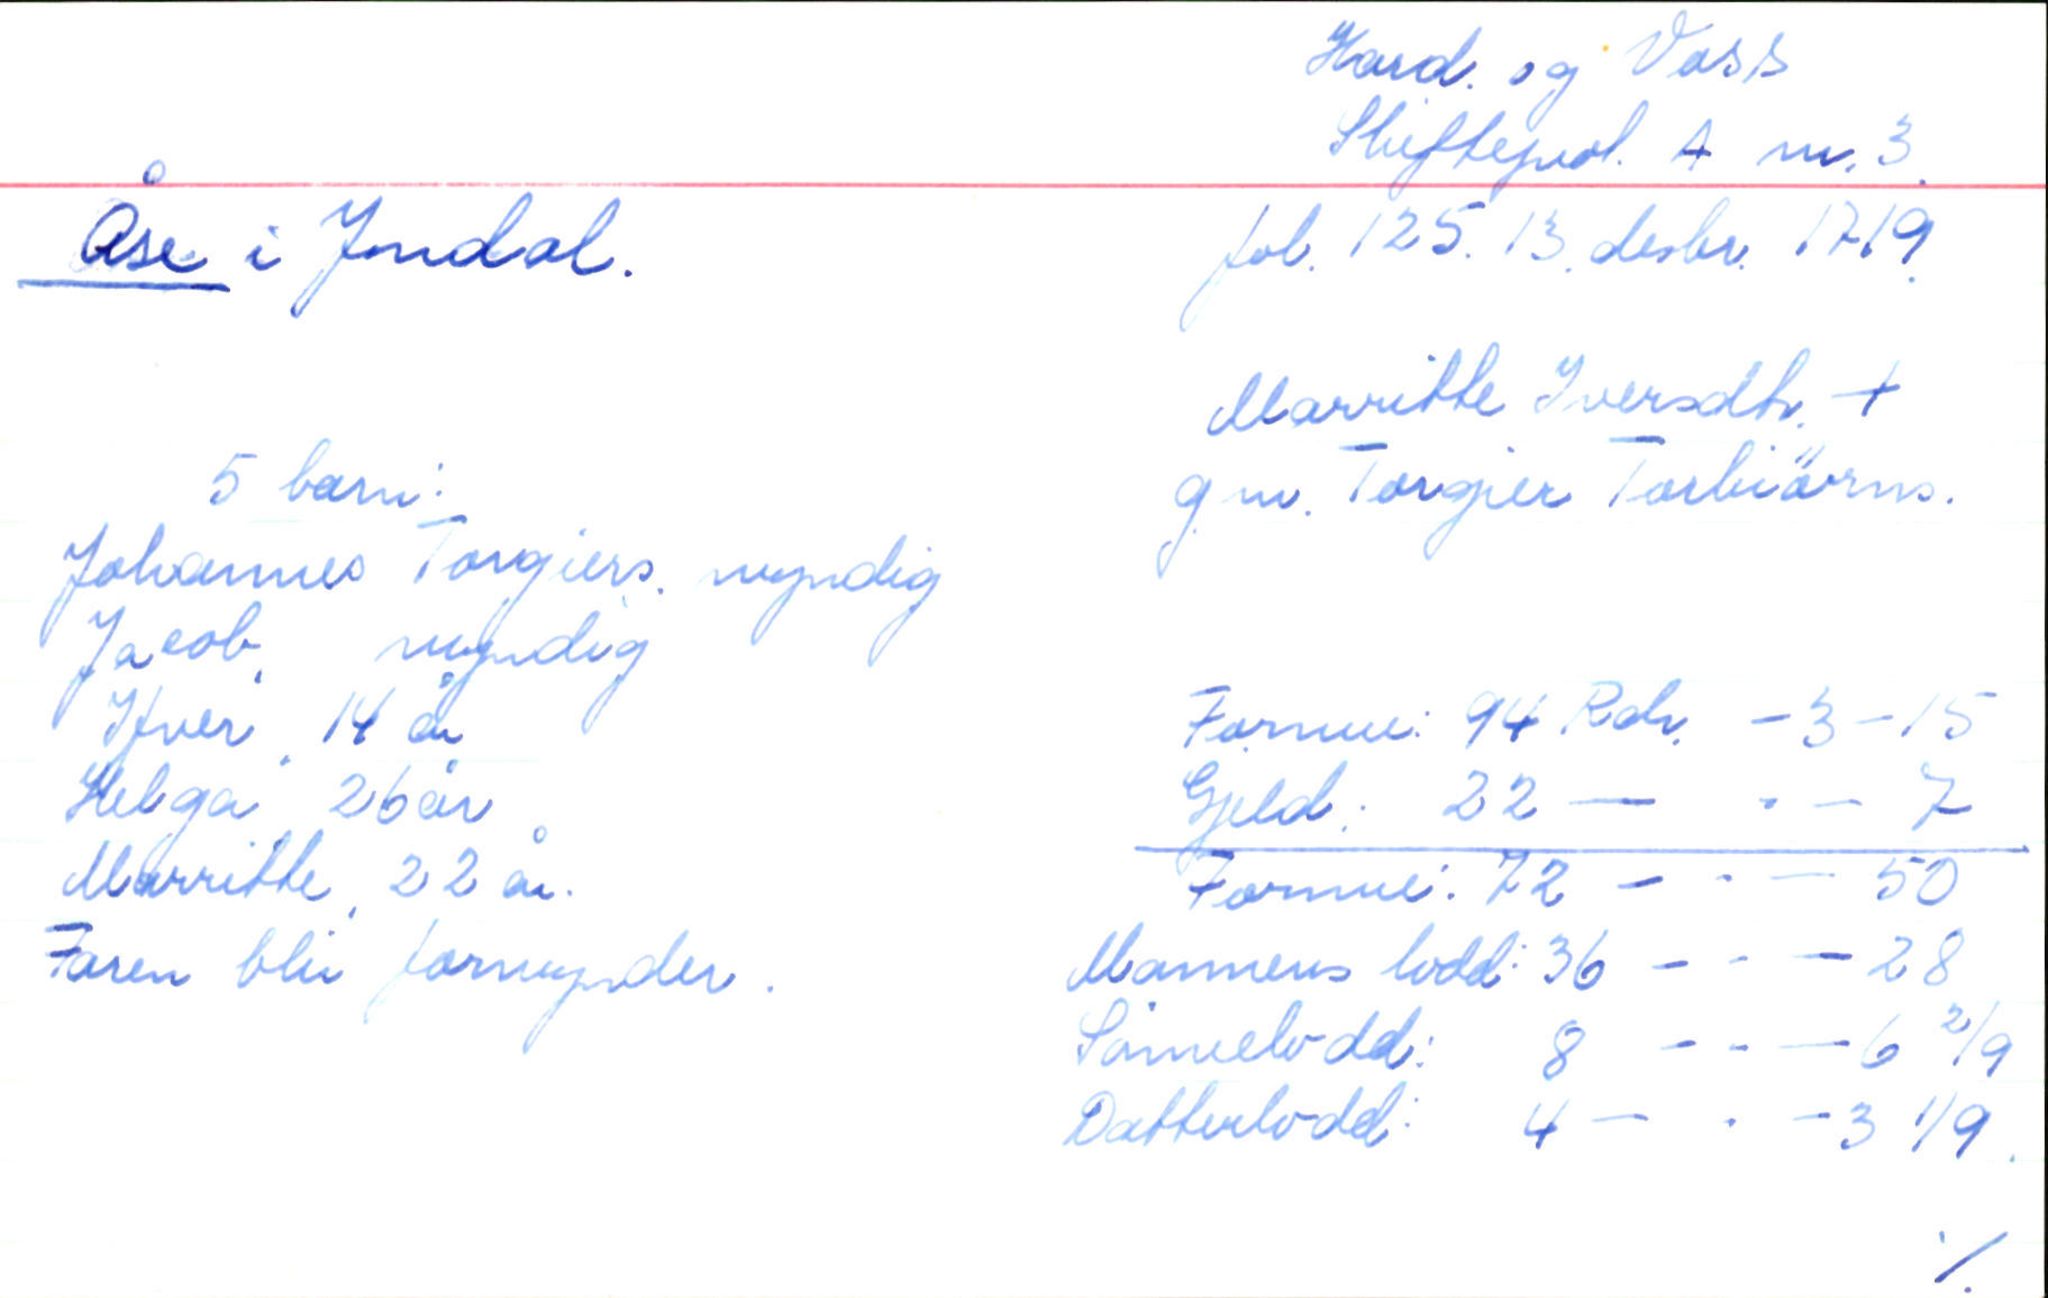 Hard. og Voss
Skifteprot. A nr. 3.
Åse i Jondal.
fol. 125. 13. desbr. 1719.
Marritte Iversdtr. +
g.m. Torgier Torbiörns.
5 barn:
Johannes Torgiers. myndig
Jacob, myndig
Ifver, 14 år
Helga 26 år
Marritte, 22 år.
Faren blir formynder.
Formue: 94 Rdr. - 3 - 15
Gjeld: 22 — - — 7
Formue: 72 — - — 50
Mannens lodd: 36 - - — 28
Sönnelodd: 8 - - — 6 2/9
Datterlodd: 4 — - — 3 1/9.
%